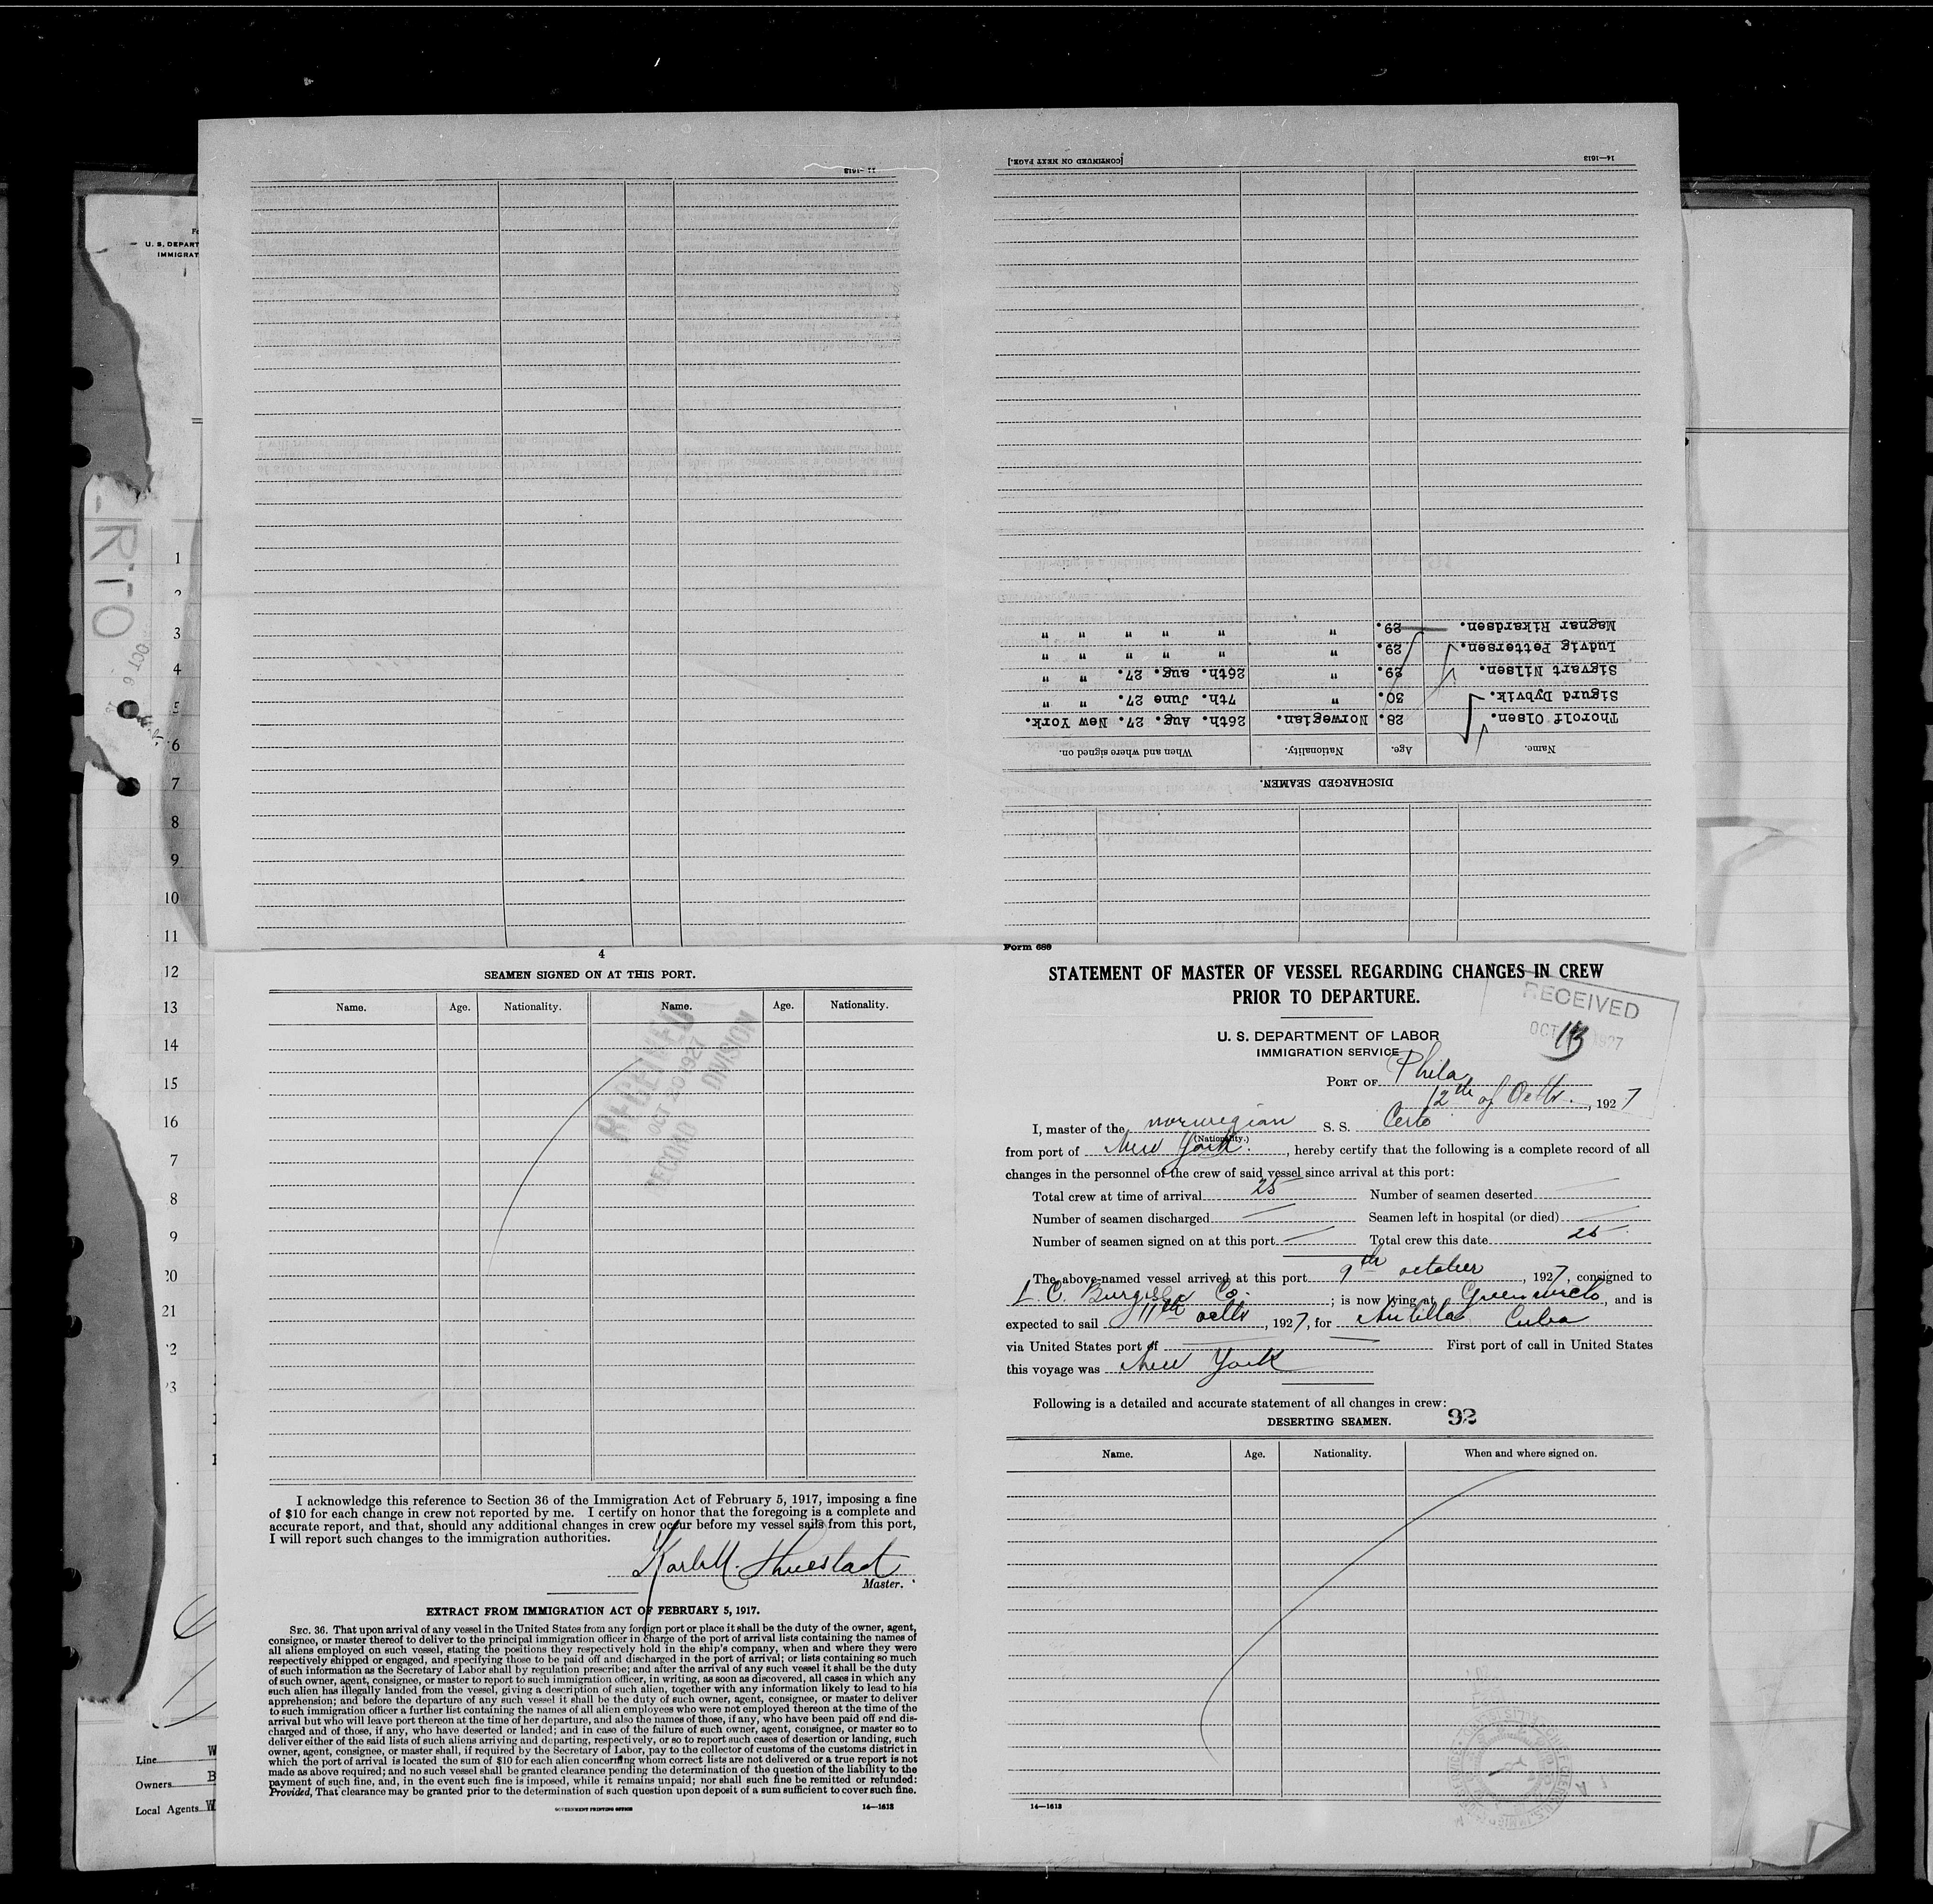 [CONTINUED ON NEXT PAGE.]
14—1613
DISCHARGED SEAMEN.
Name. Age. Nationality. When and where signed on.
Thorolf Olsen. 28. Norwegian. 26th. Aug. 27. New York.
Sigurd Dybvik. 30. " 7th. June 27. " "
Sigvart Nilsen. 29. " 26th. aug. 27. " "
Ludvig Pettersen. 29. " " " " " "
Magnar Rikardsen. 29. " " " " " "
U. S. DEPART
IMMIGRAT
1
3
4
5
6
7
8
9
10
11
12
13
14
15
16
7
8
9
20
21
Line
Owners
Local Agents
4
SEAMEN SIGNED ON AT THIS PORT.
Name. Age. Nationality. Name. Age. Nationality.
RECEIVED
OCT 20 1927
RECORD DIVISION
I acknowledge this reference to Section 36 of the Immigration Act of February 5, 1917, imposing a fine
of $10 for each change in crew not reported by me. I certify on honor that the foregoing is a complete and
accurate report, and that, should any additional changes in crew occur before my vessel sails from this port,
I will report such changes to the immigration authorities.
Master.
EXTRACT FROM IMMIGRATION ACT OF FEBRUARY 5, 1917.
SEC. 36. That upon arrival of any vessel in the United States from any foreign port or place it shall be the duty of the owner, agent,
consignee, or master thereof to deliver to the principal immigration officer in charge of the port of arrival lists containing the names of
all aliens employed on such vessel, stating the positions they respectively hold in the ship's company, when and where they were
respectively shipped or engaged, and specifying those to be paid off and discharged in the port of arrival; or lists containing so much
of such information as the Secretary of Labor shall by regulation prescribe; and after the arrival of any such vessel it shall be the duty
of such owner, agent, consignee, or master to report to such immigration officer, in writing, as soon as discovered, all cases in which any
such alien has illegally landed from the vessel, giving a description of such alien, together with any information likely to lead to his
apprehension; and before the departure of any such vessel it shall be the duty of such owner, agent, consignee, or master to deliver
to such immigration officer a further list containing the names of all alien employees who were not employed thereon at the time of the
arrival but who will leave port thereon at the time of her departure, and also the names of those, if any, who have been paid off and dis-
charged and of those, if any, who have deserted or landed; and in case of the failure of such owner, agent, consignee, or master so to
deliver either of the said lists of such aliens arriving and departing, respectively, or so to report such cases of desertion or landing, such
owner, agent, consignee, or master shall, if required by the Secretary of Labor, pay to the collector of customs of the customs district in
which the port of arrival is located the sum of $10 for each alien concerning whom correct lists are not delivered or a true report is not
made as above required; and no such vessel shall be granted clearance pending the determination of the question of the liability to the
payment of such fine, and, in the event such fine is imposed, while it remains unpaid; nor shall such fine be remitted or refunded:
Provided, That clearance may be granted prior to the determination of such question upon deposit of a sum sufficient to cover such fine.
GOVERNMENT PRINTING OFFICE 14—1613
Form 689
STATEMENT OF MASTER OF VESSEL REGARDING CHANGES IN CREW
PRIOR TO DEPARTURE.
RECEIVED
OCT 13 1927
U. S. DEPARTMENT OF LABOR
IMMIGRATION SERVICE
PORT OF Phila
12th of Octbr., 1927
I, master of the norwegian S. S. Certo
(Nationality.)
from port of New York., hereby certify that the following is a complete record of all
changes in the personnel of the crew of said vessel since arrival at this port:
Total crew at time of arrival 25 Number of seamen deserted
Number of seamen discharged Seamen left in hospital (or died)
Number of seamen signed on at this port Total crew this date 25
The above-named vessel arrived at this port 9th october, 1927, consigned to
L. C. Burgess Co.; is now lying at , and is
expected to sail 11th octbr, 1927, for Antilla Cuba
via United States port of First port of call in United States
this voyage was New York
Following is a detailed and accurate statement of all changes in crew:
DESERTING SEAMEN. 92
Name. Age. Nationality. When and where signed on.
14—1613